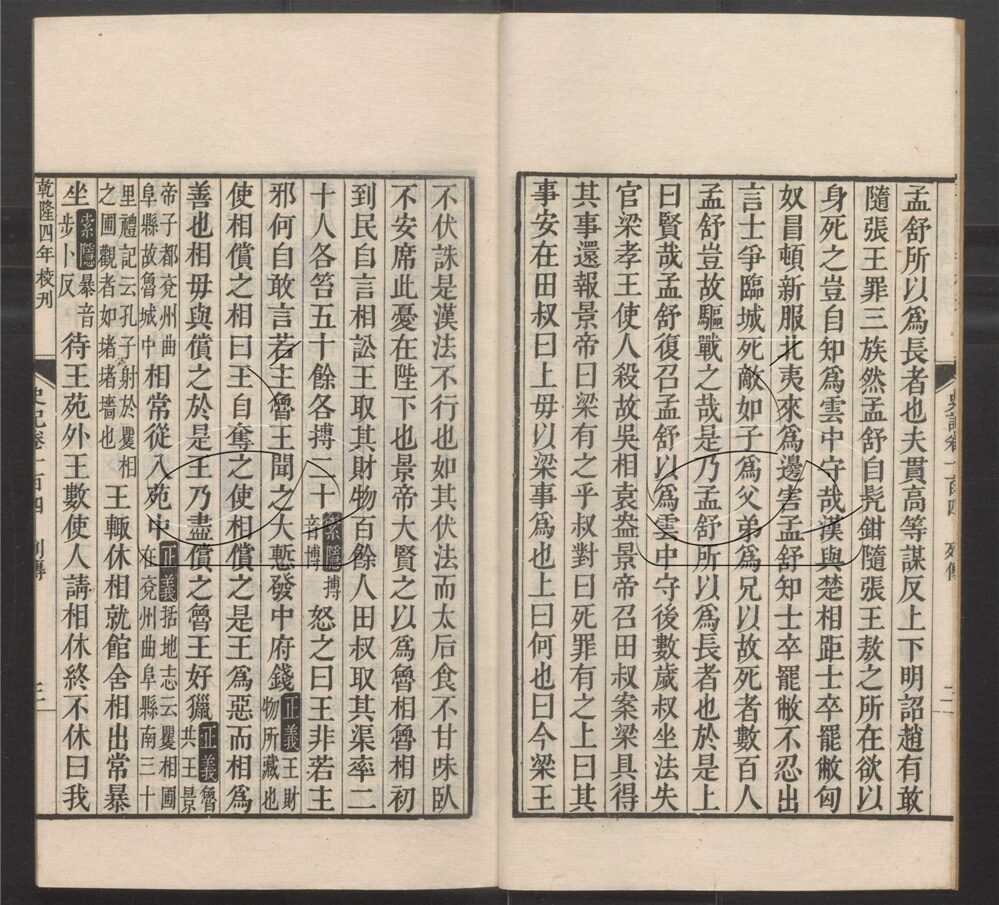 孟舒所以爲長者也夫貫高等謀反上下明詔趙有敢
隨張王罪三族然孟舒自髡鉗隨張王敖之所在欲以
身死之豈自知爲雲中守哉漢與楚相距士卒罷敝匈
奴冒頓新服北夷來爲邊害孟舒知士卒罷敝不忍出
言士爭臨城死敵如子爲父弟爲兄以故死者數百人
孟舒豈故驅戰之哉是乃孟舒所以爲長者也於是上
曰賢哉孟舒復召孟舒以爲雲中守後數歲叔坐法失
官梁孝王使人殺故吳相袁盎景帝召田叔案梁具得
其事還報景帝曰梁有之乎叔對曰死罪有之上曰其
事安在田叔曰上毋以梁事爲也上曰何也曰今梁王
史記卷一百四 列傳 二
不伏誅是漢法不行也如其伏法而太后食不甘味臥
不安席此憂在陛下也景帝大賢之以爲魯相魯相初
到民自言相訟王取其財物百餘人田叔取其渠率二
十人各笞五十餘各搏二十索隱搏音博怒之曰王非若主
邪何自敢言若主魯王聞之大慙發中府錢正義王財物所藏也
使相償之相曰王自奪之使相償之是王爲惡而相爲
善也相毋與償之於是王乃盡償之魯王好獵正義魯共王景
帝子都兗州曲阜縣故魯城中相常從入苑中正義括地志云矍相圃在兗州曲阜縣南三十
里禮記云孔子射於矍相之圃觀者如堵墻也王輒休相就館舍相出常暴
坐索隱暴音步卜反待王苑外王數使人請相休終不休曰我
乾隆四年校刊 史記卷一百四 列傳 三